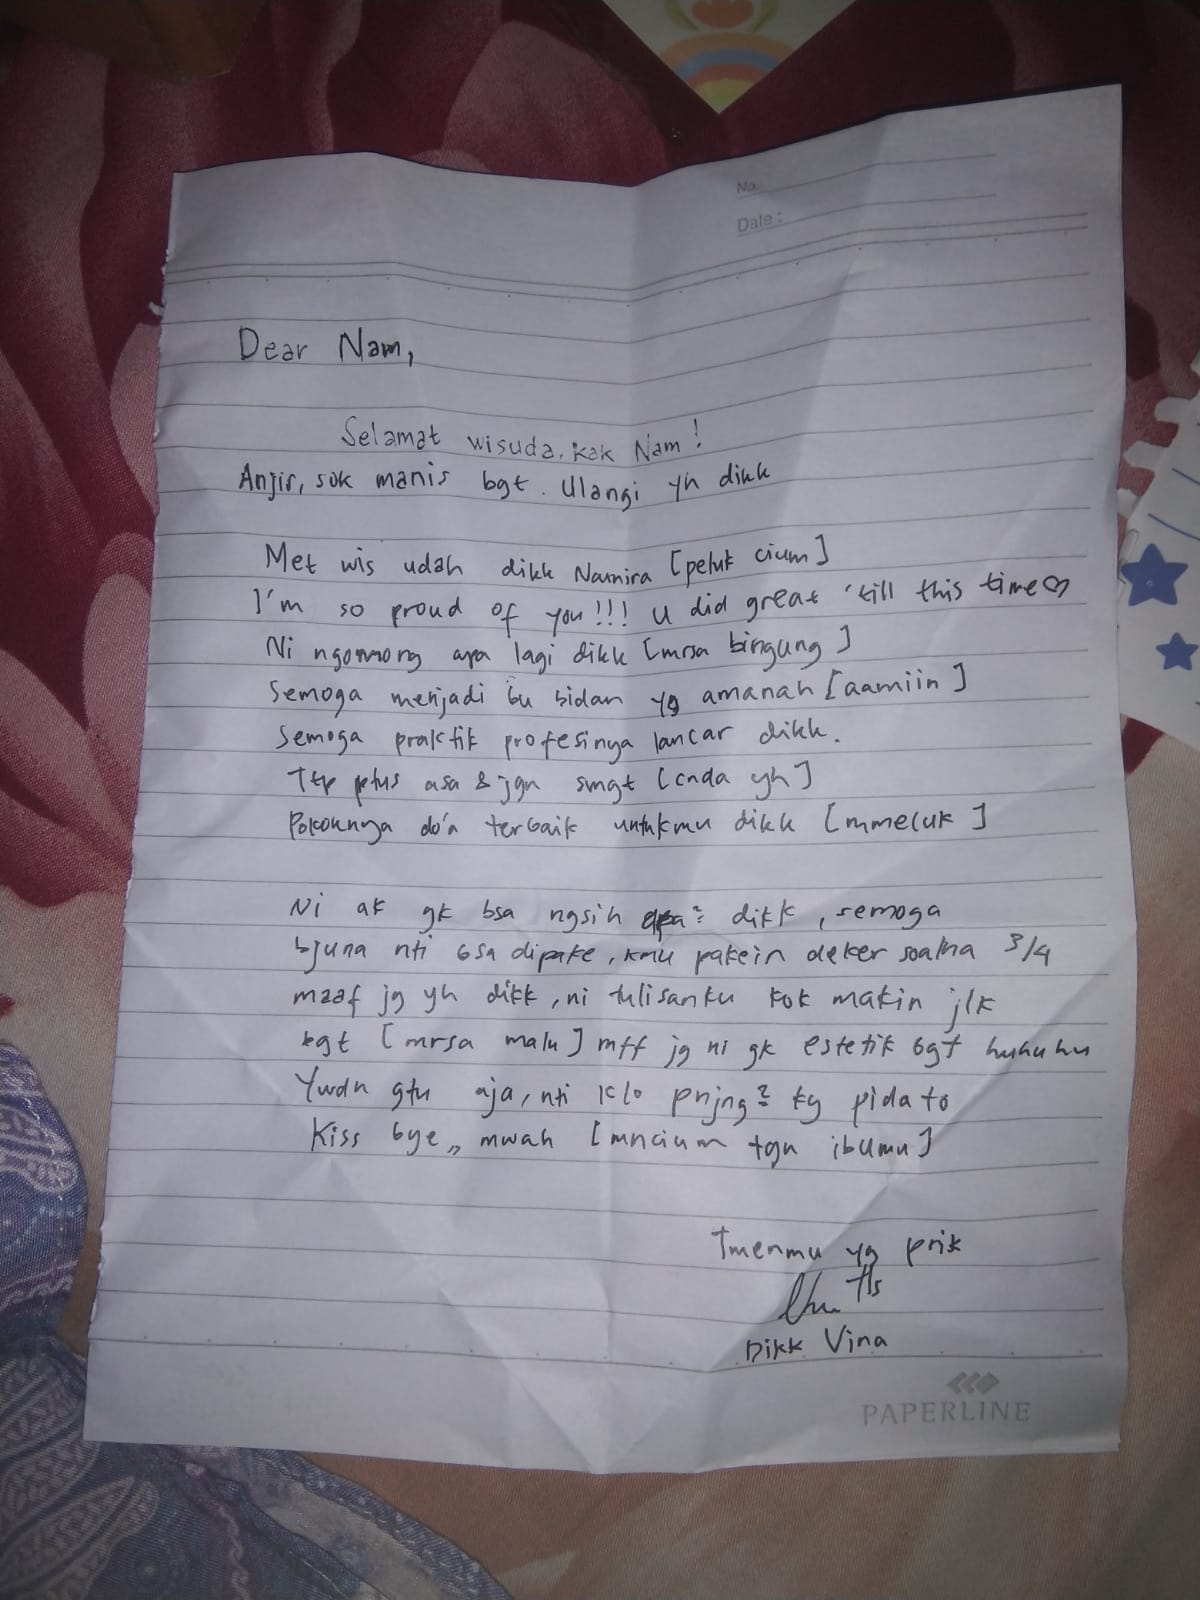 No.
Date :
Dear Nam,
Selamat wisuda, kak Nam!
Anjir, sok manis bgt. Ulangi yh dikk
Met wis udah dikk Namira [peluk cium]
I'm so proud of you!!! u did great 'till this time♡
Ni ngomong apa lagi dikk [mrsa bingung]
Semoga menjadi bu bidan yg amanah [aamiin]
Semoga praktik profesinya lancar dikk.
Ttp ptus asa & jgn smgt [cnda yh]
Pokoknya do'a terbaik untukmu dikk [mmeluk]
Ni ak gk bsa ngsih apa² dikk, semoga
bjuna nti bsa dipake, kmu pakein deker soalna 3/4
maaf jg yh dikk, ni tulisanku kok makin jlk
bgt [mrsa malu] mff jg ni gk estetik bgt huhuhu
Ywdh gtu aja, nti klo pnjng² kg pidato
Kiss bye,, mwah [mncium tgn ibumu]
Tmenmu yg prik
Dikk Vina
PAPERLINE